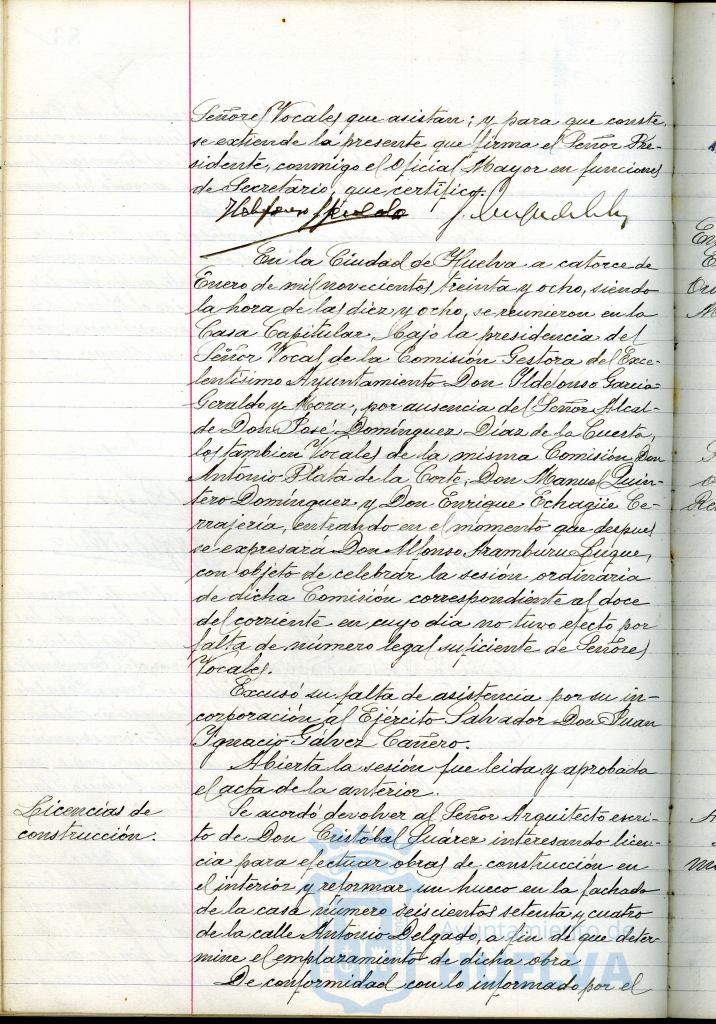 Señores Vocales que asistan; y para que conste,
se extiende la presente que firma el Señor Pre-
sidente, conmigo el Oficial Mayor en funciones
de Secretario, que certifico.
En la Ciudad de Huelva a catorce de
Enero de mil novecientos treinta y ocho, siendo
la hora de las diez y ocho, se reunieron en la
Casa Capitular, bajo la presidencia del
Señor Vocal de la Comisión Gestora del Exce-
lentísimo Ayuntamiento Don Ildefonso García-
Geraldo y Mora, por ausencia del Señor Alcal-
de Don José Domínguez Díaz de la Cuesta,
los tambien Vocales de la misma Comisión Don
Antonio Plata de la Corte, Don Manuel Quin-
tero Domínguez y Don Enrique Echagüe Ce-
rrajería, entrando en el momento que despues
se expresará Don Alfonso Aramburu Luque,
con objeto de celebrar la sesión ordinaria
de dicha Comisión correspondiente al doce
del corriente en cuyo dia no tuvo efecto por
falta de número legal suficiente de Señores
Vocales.
Excusó su falta de asistencia por su in-
corporación al Ejército Salvador Don Juan
Ignacio Gálvez Cañero.
Abierta la sesión fue leida y aprobada
el acta de la anterior.
Licencias de
construcción.
Se acordó devolver al Señor Arquitecto escri-
to de Don Cristóbal Suárez interesando licen-
cia para efectuar obras de construcción en
el interior y reformar un hueco en la fachada
de la casa número seiscientos setenta y cuatro
de la calle Antonio Delgado, a fin de que deter-
mine el emplazamiento de dicha obra
De conformidad con lo informado por el
Ayuntamiento de
HUELVA